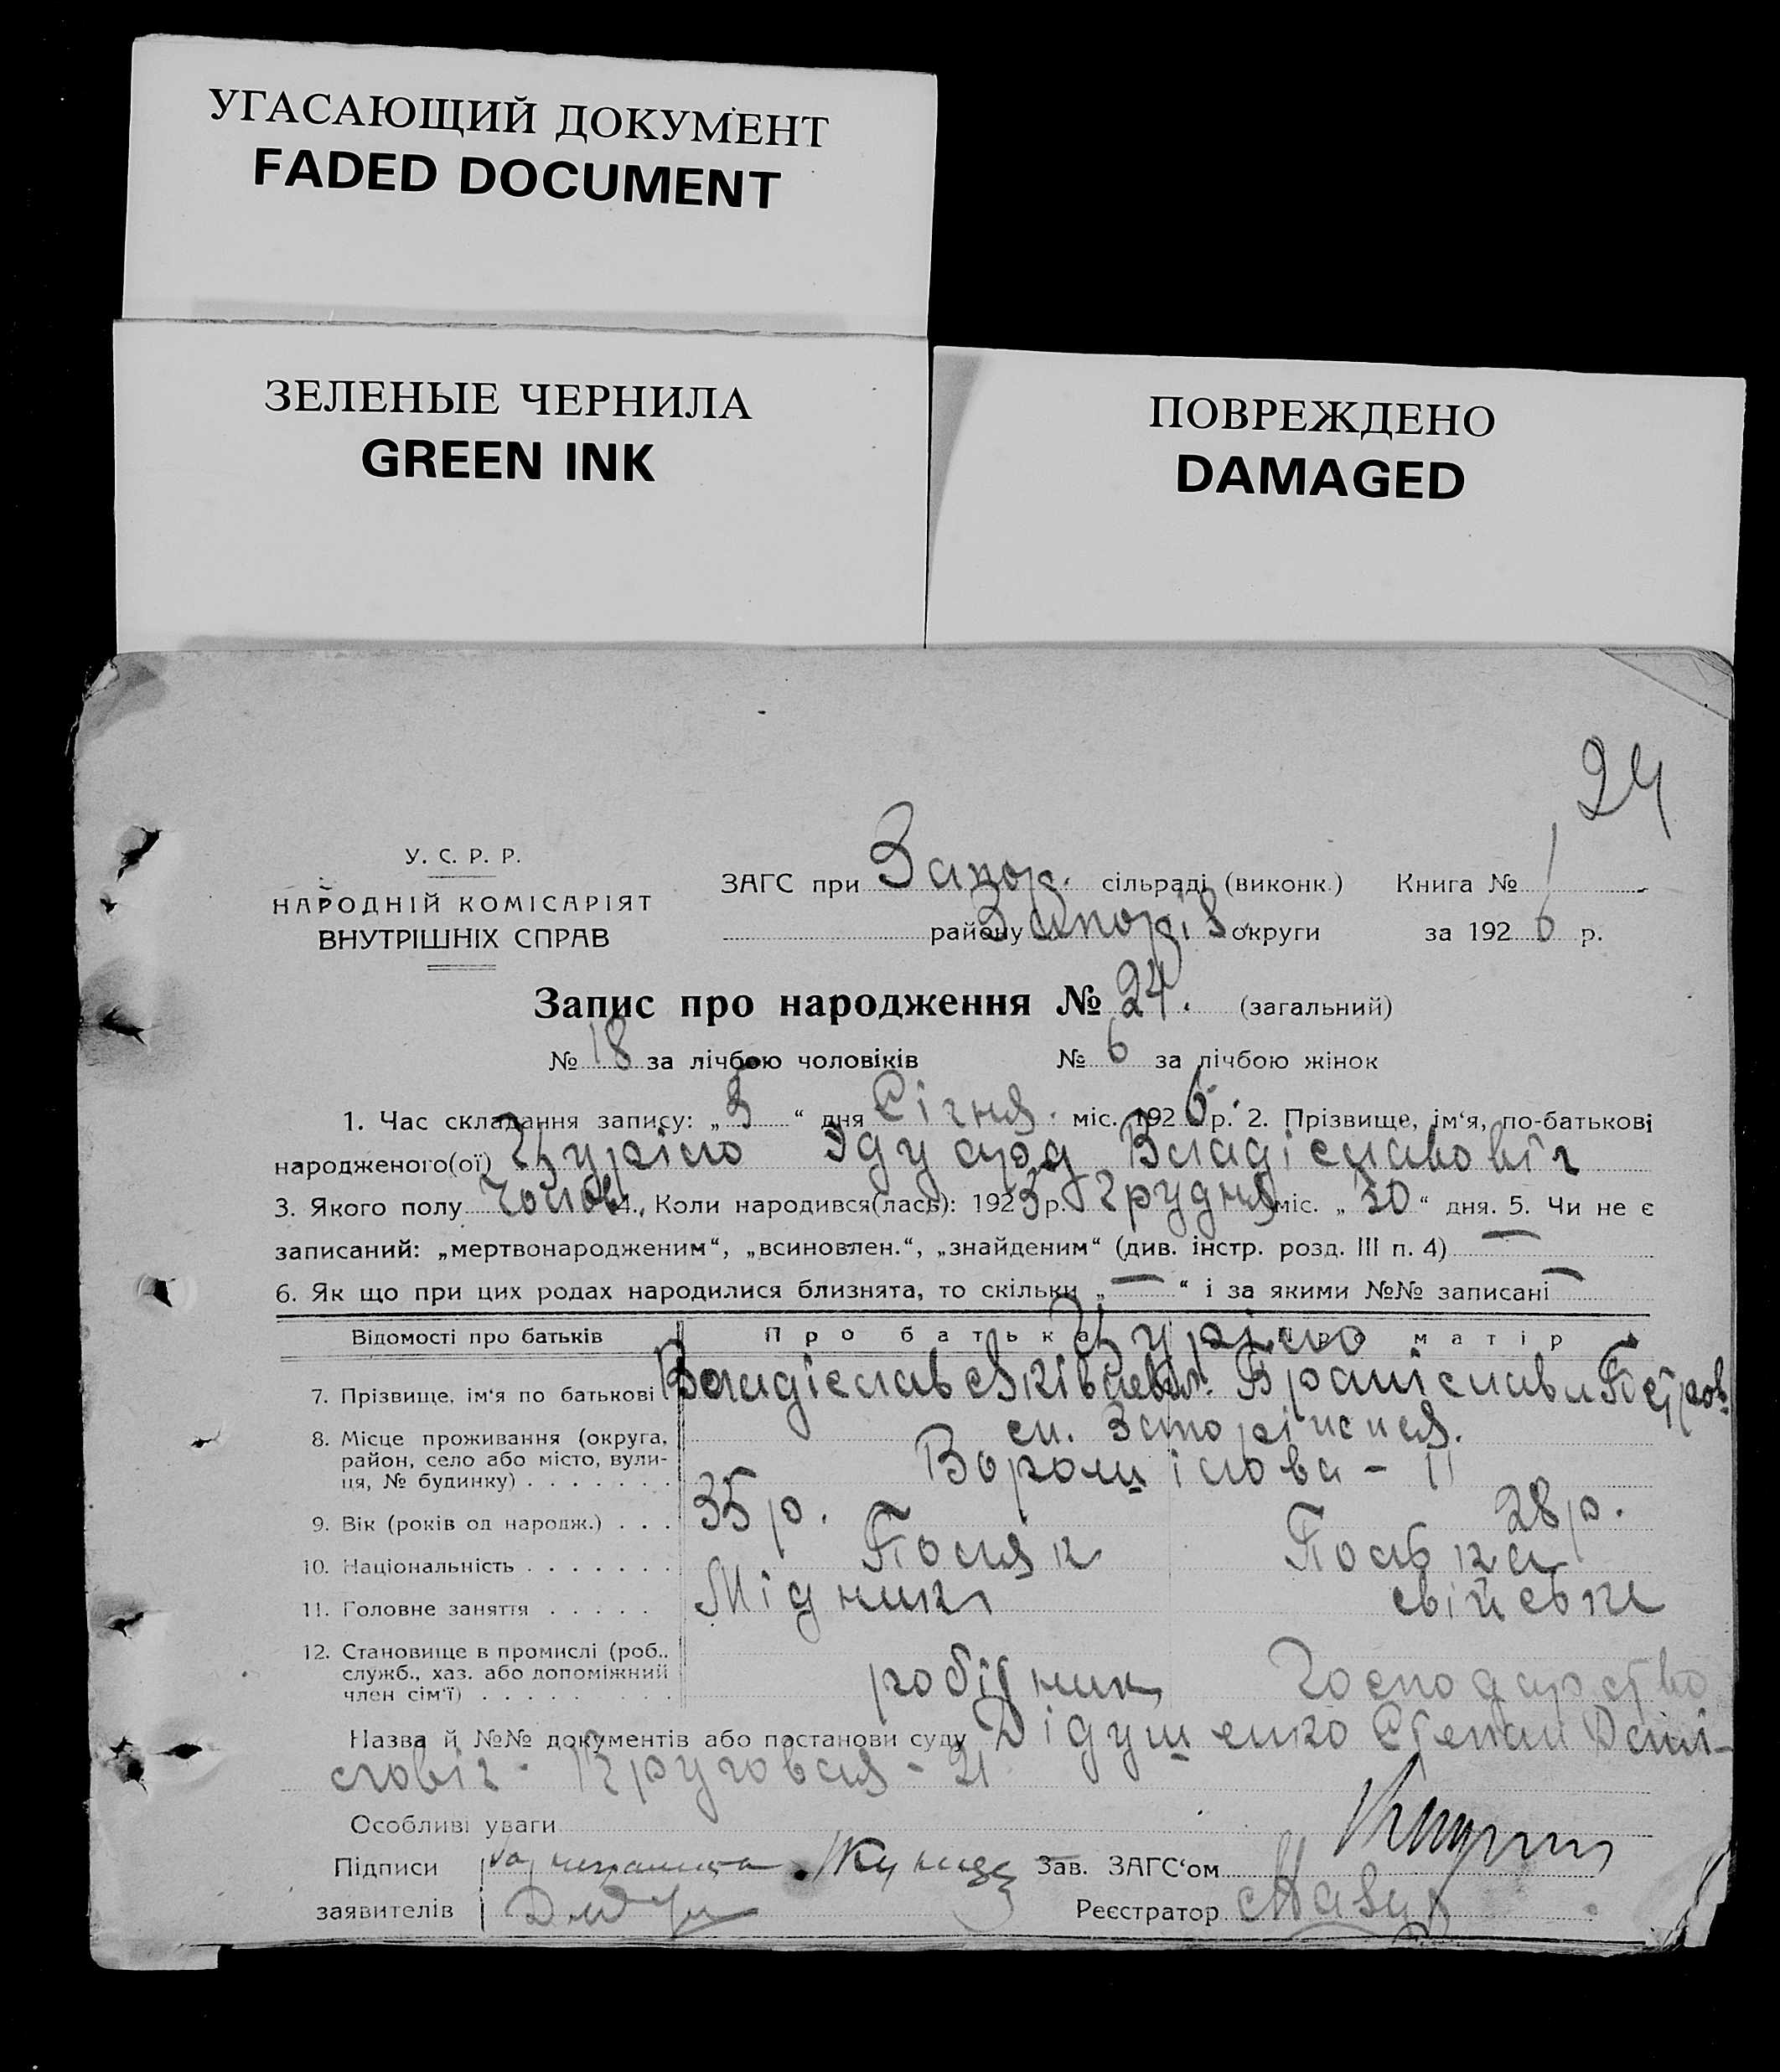 УГАСАЮЩИЙ ДОКУМЕНТ
FADED DOCUMENT
ЗЕЛЕНЫЕ ЧЕРНИЛА
GREEN INK
ПОВРЕЖДЕНО
DAMAGED
24
У. С. Р. Р.
НАРОДНІЙ КОМІСАРІЯТ
ВНУТРІШНІХ СПРАВ
ЗАГС при Запор. сільраді (виконк.) Книга № 1
району Запоріз округи за 1926 р.
Запис про народження № 24. (загальний)
№ 18 за лічбою чоловіків № 6 за лічбою жінок
1. Час складання запису: „5“ дня Січня міс. 1926 р. 2. Прізвище, ім‘я, по-батькові
народженого(ої) Цуріло Эдуард Владіславовіч
3. Якого полу чолов. 4. Коли народився(лась): 1925 р. Грудня міс. „30“ дня. 5. Чи не є
записаний: „мертвонародженим“, „всиновлен.“, „знайденим“ (див. інстр. розд. III п. 4) —
6. Як що при цих родах народилися близнята, то скільки „—“ і за якими №№ записані —
Відомості про батьків Про батька Про матір
Цуріло
7. Прізвище, ім‘я по батькові Владіслав Браніслава Петров.
8. Місце проживання (округа, район, село або місто, вулиця, № будинку) . . . . . . .
ст. Запоріжжя.
Ворошілова - 11
9. Вік (років од народж.) . . . 35 р. 28 р.
10. Національність . . . . . . . Поляк Полька
11. Головне заняття . . . . . Мідник свійське
12. Становище в промислі (роб., служб., хаз. або допоміжний член сім‘ї) . . . . . . . . .
робідник господарство
Назва й №№ документів або постанови суду Дідушенко Степан Дані-
ловіч. Круговая - 21
Особливі уваги
Підписи Зав. ЗАГС‘ом
заявителів Реєстратор